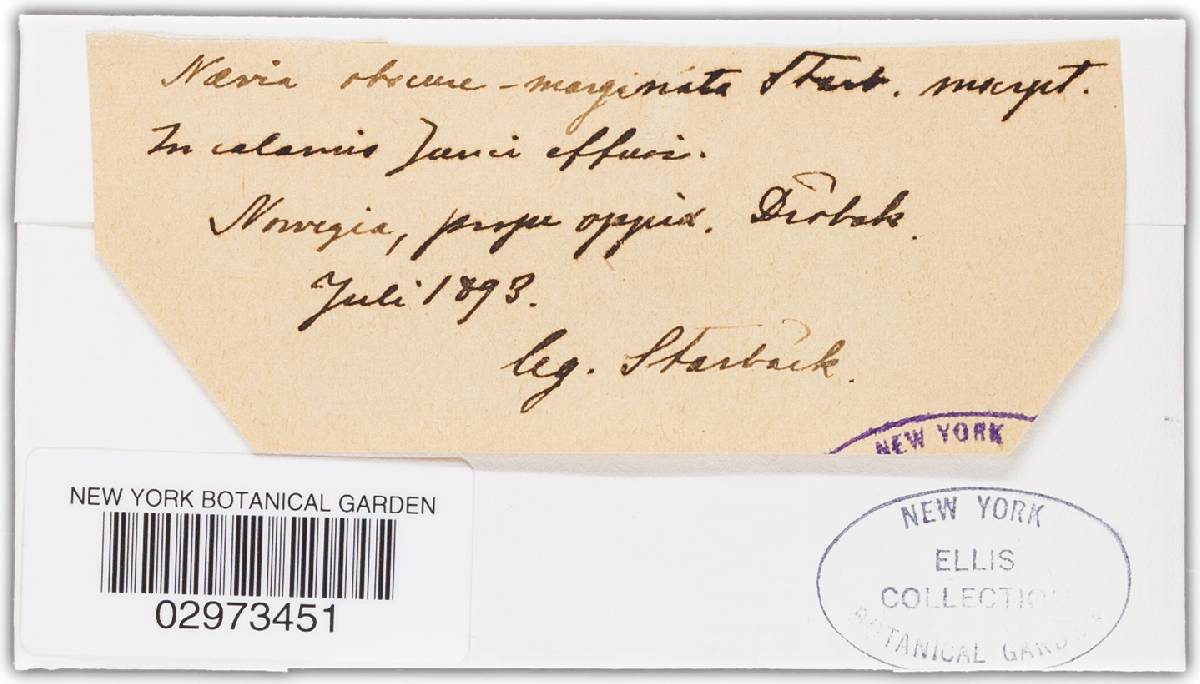 Nævia obscure-marginata Starb. mscrpt.
In calamis Junci effusi.
Norvegia, prope oppid. Dröbak.
Juli 1893.
leg. Starbäck.
NEW YORK
NEW YORK BOTANICAL GARDEN
02973451
NEW YORK
ELLIS
COLLECTION
BOTANICAL GARDEN